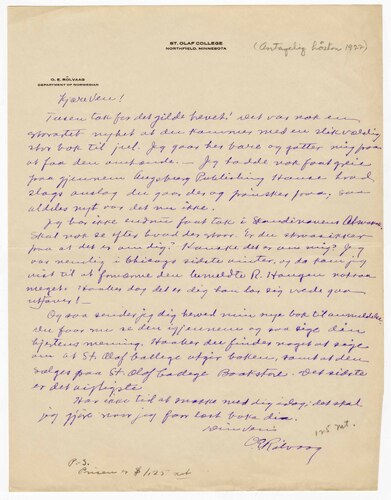 ST. OLAF COLLEGE
NORTHFIELD, MINNESOTA
(Antagelig hösten 1922)
O. E. RÖLVAAG
DEPARTMENT OF NORWEGIAN
Kjære Ven!
Tusen tak for det gilde brevet! Det var nok en
storartet nyhet at du kommer med en slik vældig
stor bok til jul. Jeg gaar her bare og glæder mig paa
at faa den anmelde. — Jeg hadde nok faat greie
paa gjennem Augsburg Publishing House hvad
slags arbeide du og
aldeles nyt var det nu ikke.
Jeg har ikke endnu faat tak i Skandinavens Almanak.
Skal nok se efter hvad der staar. Er du saa sikker
paa at det er om dig? Kanske det er om mig? Jeg
var nemlig i Chicago sidste vinter, og da kom jeg
vist til at fornærme den R. Haugen noksaa
meget. Haabe dog det er dig han lar sig vrede gaa
utover! —
Og saa sender jeg dig herved min nye bok til anmeldelse.
Du faar nu se den igjennem og saa sige din
hjertens mening. Haaber du finder noget at sige
om at St. Olaf College utgir boken, samt at den
sælges paa St. Olaf College Bookstore. Det sidste
er det vigtigste.
Har ikke tid at snakke med dig idag; det skal
jeg gjøre naar jeg faar læst boka din.
Din ven
O E Rölvaag
1.25 net.
P.S.
Prisen er $1.25 net